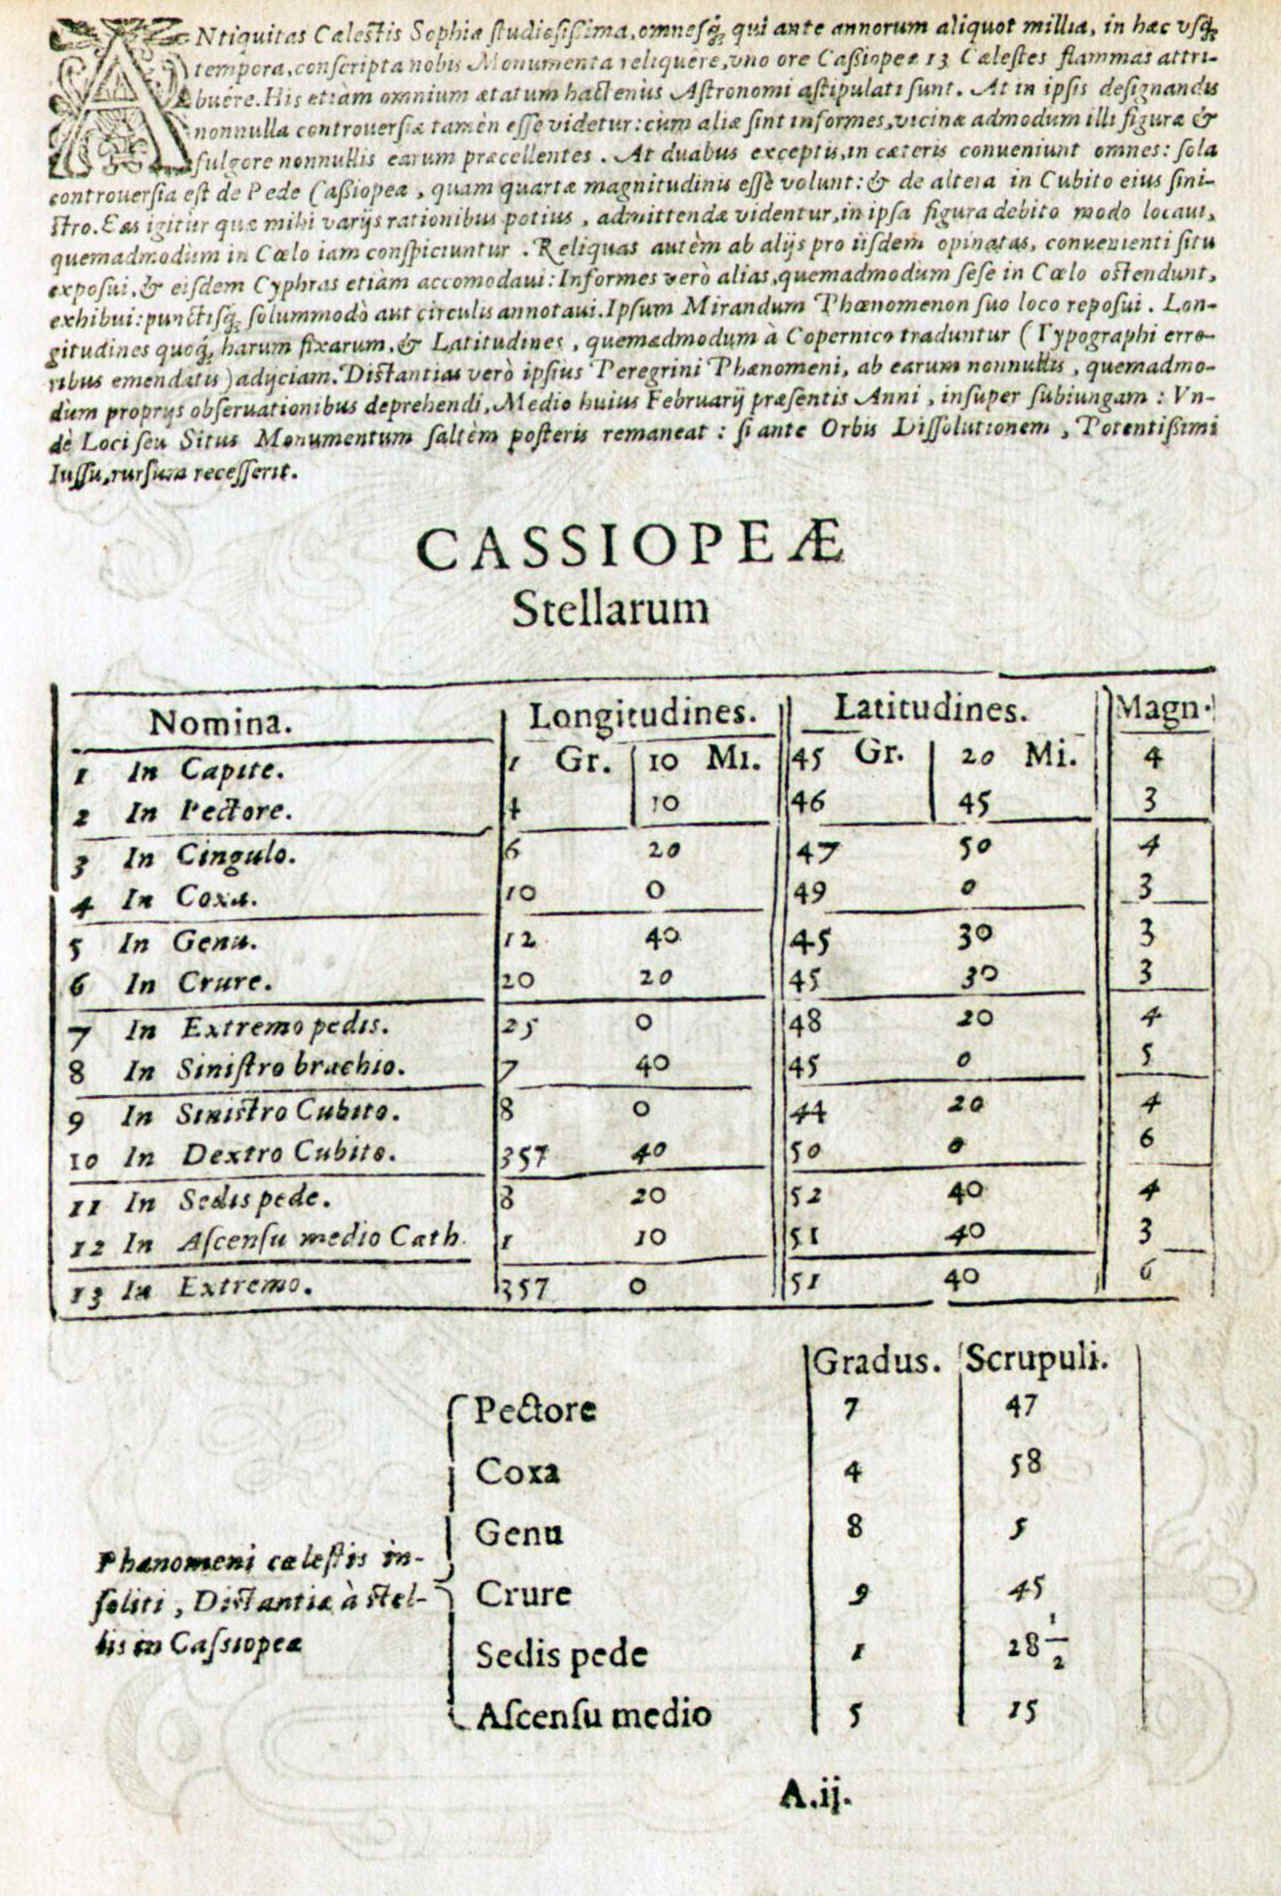 ANtiquitas Cælestis Sophiæ studiosissima, omnesq́; qui ante annorum aliquot millia, in hæc vsq́;
tempora, conscripta nobis Monumenta reliquere, vno ore Cassiopeæ 13 Cælestes flammas attri-
buére. His etiàm omnium ætatum hactenùs Astronomi astipulati sunt. At in ipsis designandis
nonnulla controuersiæ tamèn esse videtur: cùm aliæ sint informes, vicinæ admodum illi figuræ &
fulgore nonnullis earum præcellentes. At duabus exceptis, in cæteris conueniunt omnes: sola
controuersia est de Pede Cassiopeæ, quam quartæ magnitudinis esse volunt: & de altera in Cubito eius sini-
stro. Eas igitùr quæ mihi varijs rationibus potius, admittendæ videntur, in ipsa figura debito modo locaui,
quemadmodùm in Cœlo iam conspiciuntur. Reliquas autèm ab alijs pro iisdem opinatas, conuenienti situ
exposui, & eisdem Cyphras etiàm accomodaui: Informes verò alias, quemadmodum sese in Cœlo ostendunt,
exhibui: punctisq́; solummodò aut circulis annotaui. Ipsum Mirandum Phœnomenon suo loco reposui. Lon-
gitudines quoq́; harum fixarum, & Latitudines, quemadmodum à Copernico traduntur (Typographi erro-
ribus emendatis) adijciam. Distantias verò ipsius Peregrini Phænomeni, ab earum nonnullis, quemadmo-
dum proprijs obseruationibus deprehendi, Medio huius Februarij præsentis Anni, insuper subiungam: Vn-
dè Loci seu Situs Monumentum saltèm posteris remaneat: si ante Orbis Dissolutionem, Potentissimi
Iussu, rursum recesserit.
CASSIOPEÆ
Stellarum
Nomina. Longitudines. Latitudines. Magn.
1 In Capite. 1 Gr. 10 Mi. 45 Gr. 20 Mi. 4
2 In Pectore. 4 10 46 45 3
3 In Cingulo. 6 20 47 50 4
4 In Coxa. 10 0 49 0 3
5 In Genu. 12 40 45 30 3
6 In Crure. 20 20 45 30 3
7 In Extremo pedis. 25 0 48 20 4
8 In Sinistro brachio. 7 40 45 0 5
9 In Sinistro Cubito. 8 0 44 20 4
10 In Dextro Cubito. 357 40 50 0 6
11 In Sedis pede. 8 20 52 40 4
12 In Ascensu medio Cath. 1 10 51 40 3
13 In Extremo. 357 0 51 40 6
Gradus. Scrupuli.
Pectore 7 47
Coxa 4 58
Genu 8 5
Phænomeni cælestis in-
soliti, Distantiæ à stel-
lis in Cassiopea
Crure 9 45
Sedis pede 1 28 1/2
Ascensu medio 5 15
A.ij.